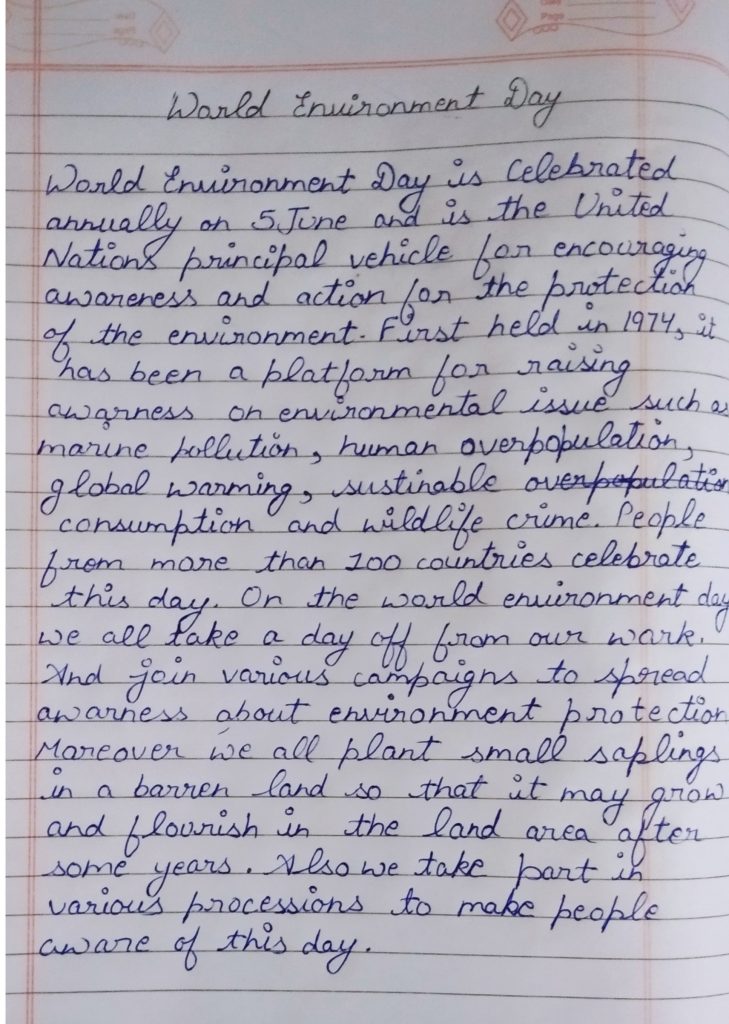 World Environment Day
World Environment Day is Celebrated
annually on 5 June and is the United
Nations principal vehicle for encouraging
awareness and action for the protection
of the environment. First held in 1974, it
has been a platform for raising
awarness on environmental issue such as
marine pollution, human overpopulation,
global warming, sustinable overpopulation
consumption and wildlife crime. People
from more than 100 countries celebrate
this day. On the world environment day
we all take a day off from our work.
And join various campaigns to spread
awarness about environment protection
Moreover we all plant small saplings
in a barren land so that it may grow
and flourish in the land area after
some years. Also we take part in
various processions to make people
aware of this day.